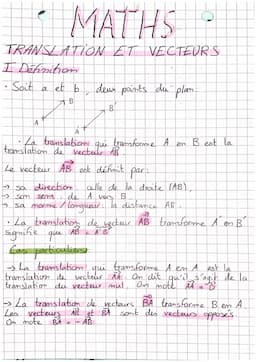 MATHS
TRANSLATION ET VECTEURS
I Définition
• Soit a et b, deux points du plan.
B
B'
A
A'
• La translation qui transforme A en B est la
translation de vecteur AB⃗.
Le vecteur AB⃗ est définit par :
→ sa direction : celle de la droite (AB),
→ son sens : de A vers B
→ sa norme / longueur : la distance AB.
• La translation de vecteur AB⃗ transforme A' en B'
signifie que AB⃗ = A'B'⃗
Cas particuliers
→ La translation qui transforme A en A est la
translation de vecteur AA⃗. On dit qu'il s'agit de la
translation du vecteur nul. On note AA⃗ = 0⃗
→ La translation de vecteurs BA⃗ transforme B en A.
Les vecteurs AB⃗ et BA⃗ sont des vecteurs opposés.
On note BA⃗ = -AB⃗.